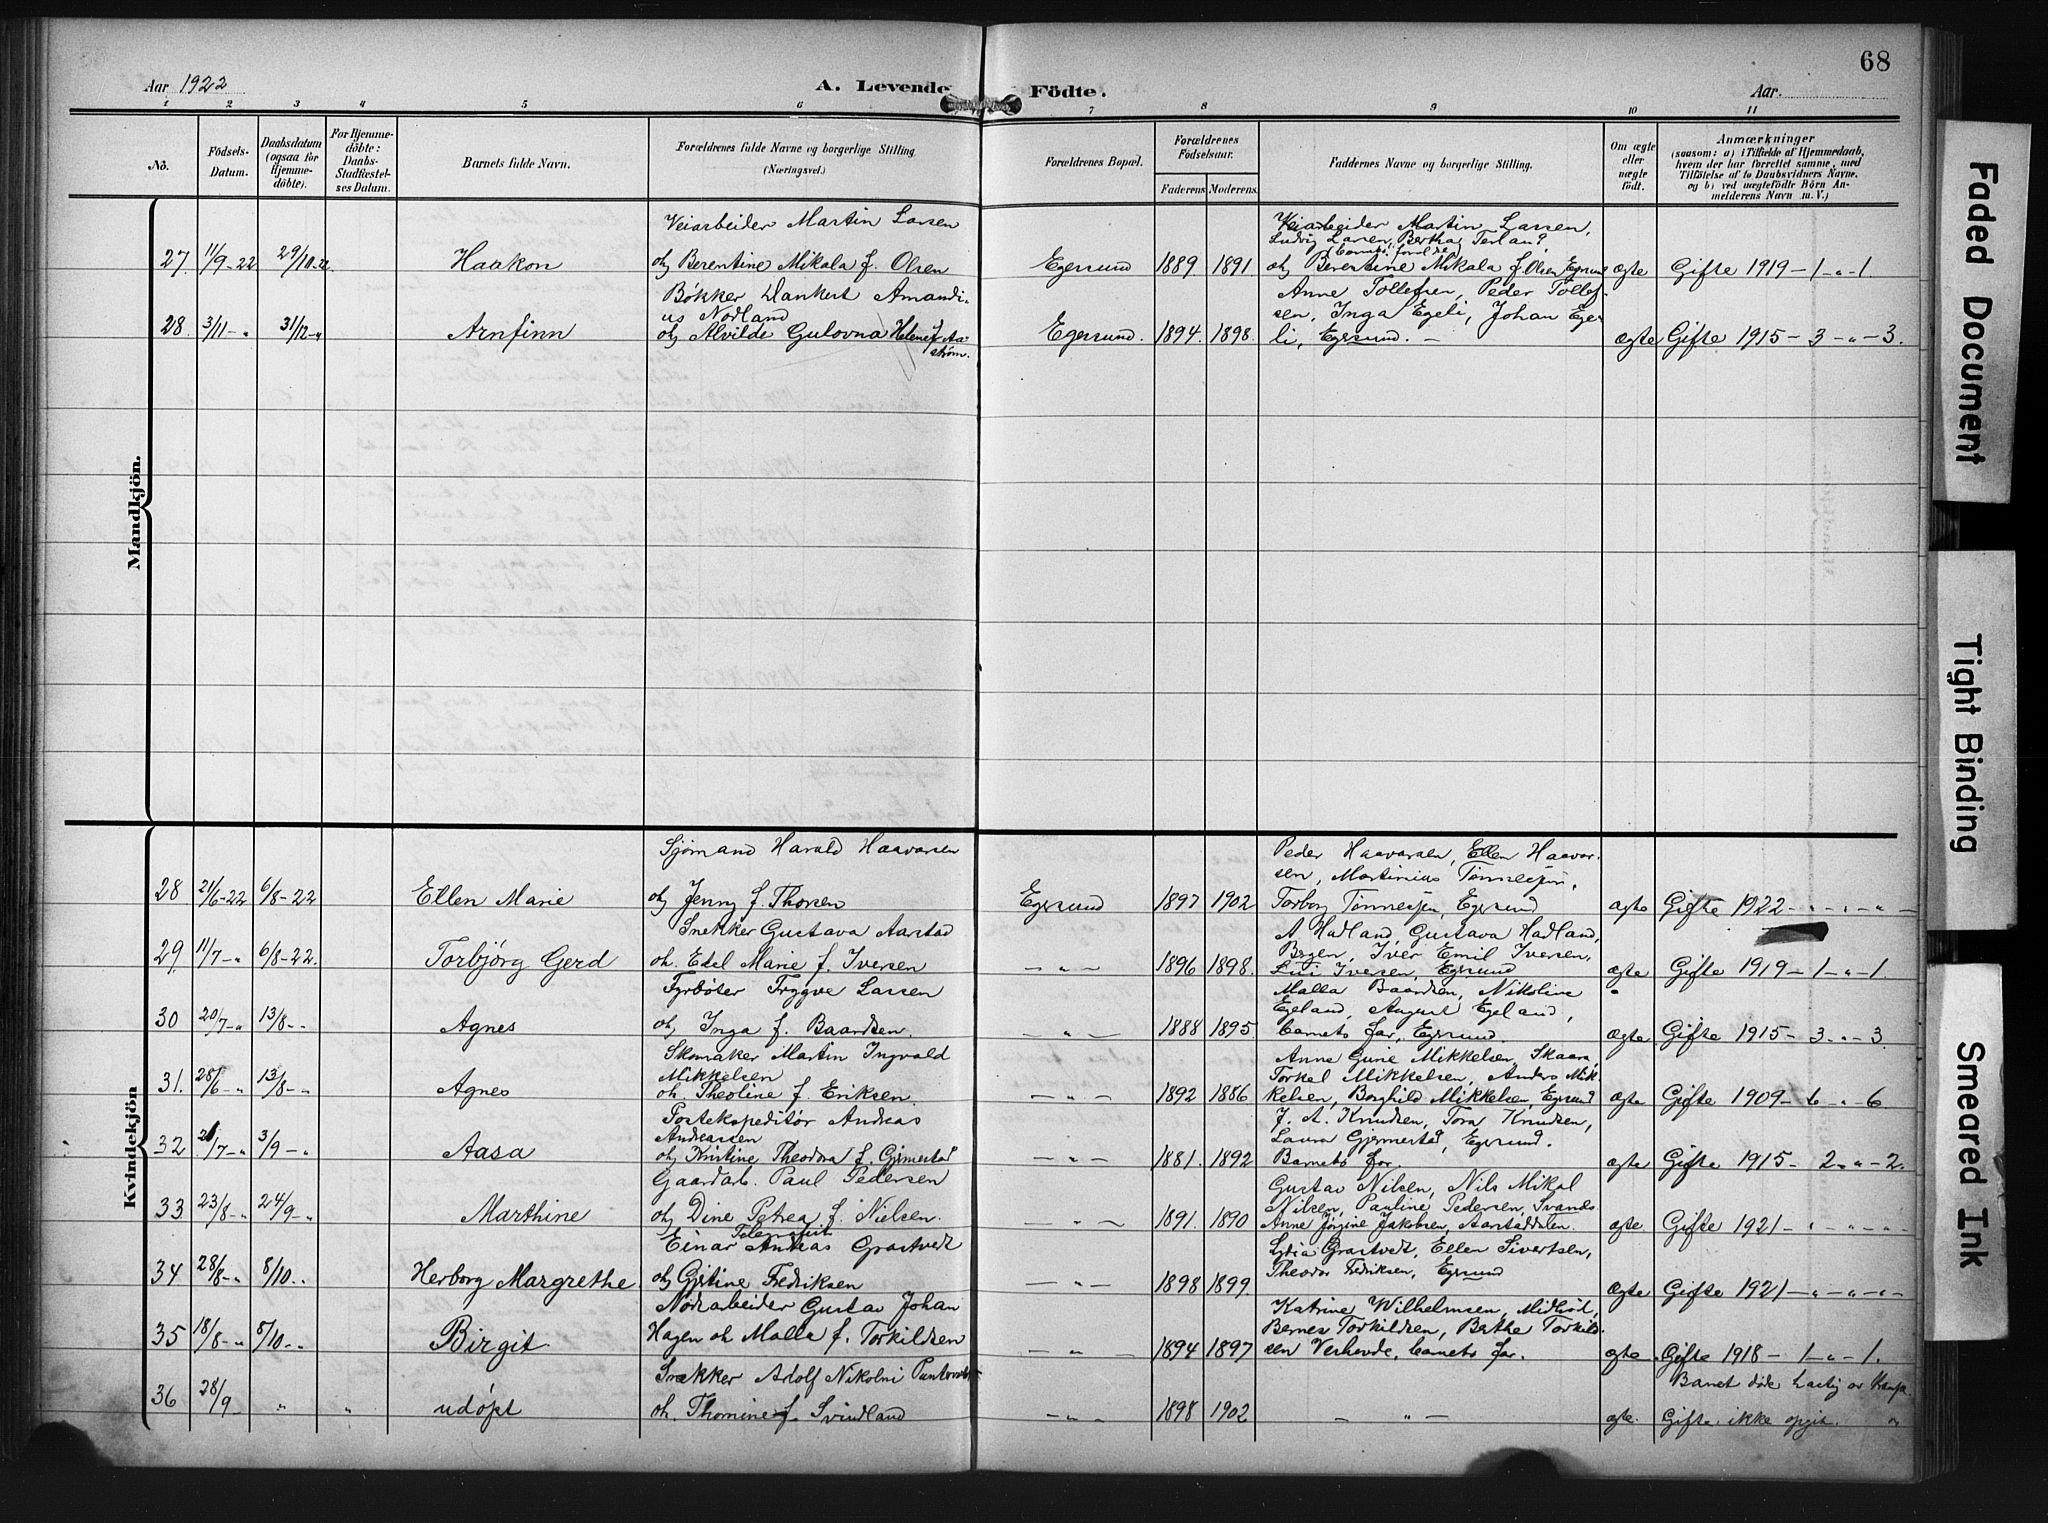 68
Aar 1922
A. Levende Födte.
Aar.
1 2 3 4 5 6 7 8 9 10 11
No.
Födsels-Datum.
Daabsdatum (ogsaa for Hjemme-döbte).
For Hjemme-döbte: Daabs-Stadfæstel-ses Datum.
Barnets fulde Navn.
Forældrenes fulde Navne og borgerlige Stilling (Næringsvei.)
Forældrenes Bopæl.
Forældrenes Födselsaar.
Faderens. Moderens.
Faddernes Navne og borgerlige Stilling.
Om ægte eller uægte födt.
Anmærkninger
(saasom: a) i Tilfælde af Hjemmedaab, hvem der har forrettet samme, med Tilföielse af to Daabsvidners Navne. og b) ved uægtefödte Börn An-melderens Navn m. V.)
Mandkjön.
Veiarbeider Martin Larsen
Veiarbeider Martin Larsen,
Ludvig Larsen, Bertha Terland,
27. 11/9-22 29/10-22 Haakon og Berentine Mikala f. Olsen Egersund 1889 1891 og Berentine Mikala f. Olsen Egersund ægte Gifte 1919 - 1 - " - 1
Bökker Dankert Amandi-
us Nodland
Anne Tollefsen, Peder Tollef-
sen, Inga Egeli, Johan Ege-
28. 3/11 - " 31/12 - " Arnfinn og Alvilde Gulovna Helene f. Aa-
ström.
Egersund. 1894. 1898. li, Egersund. - ægte Gifte 1915 - 3 - " - 3.
Kvindekjön
Sjømand Harald Haavarsen
Peder Haavarsen, Ellen Haavar-
sen, Martinius Tønnesen,
28 21/6-22 6/8-22 Ellen Marie og Jenny f. Thorsen Egersund 1897 1902 Torborg Tønnesen, Egersund ægte Gifte 1922 - " - " -
Snekker Gustava Aarstad
A Hadland, Gustava Hadland,
Bergen, Iver Emil Iversen,
29. 11/7 - " 6/8-22. Torbjørg Gerd og. Edel Marie f. Iversen - " - 1896 1898. Iversen, Egersund ægte Gifte 1919 - 1 - " - 1
Fyrbøter Tryggve Larsen
Malla Baardsen, Nikoline
Egeland, August Egeland,
30 20/7 - " 13/8 - " Agnes og Inga f. Baardsen. - " - 1888 1895. barnets far, Egersund. ægte. Gifte 1915 - 3 - " - 3.
Skomaker Martin Ingvald
Mikkelsen
Anne Gurie Mikkelsen, Skaara,
Torkel Mikkelsen, Anders Mik-
31. 28/6 - " 13/8 - " Agnes og. Theoline f. Eriksen. - " - 1892 1886 kelsen, Borghild Mikkelsen, Egersund ægte Gifte 1909 - 6 - " - 6.
Postekspeditør Andreas
Andreassen
J. A. Knudsen, Tora Knudsen,
Laura Gjermestad, Egersund.
32 21/7 - " 3/9 - " Aasa og Kristine Theodora f. Gjermestad - " - 1881. 1892 Barnets far. ægte Gifte 1915 - 2 - " - 2.
Gaardarb. Paul Pedersen
Gustav Nilsen, Nils Mikal
Nilsen, Pauline Pedersen, Svands
33 23/8 - " 24/9 - " Marthine og Dine Petrea f. Nielsen. - " - 1891. 1890 Anne Jørgine Jakobsen, Aarstaddalen. ægte Gifte 1921 - " - " - "
Telegrafist
Einar Andreas Grastvedt
Lydia Grastvedt, Ellen Sivertsen,
34 28/8 - " 8/10 - " Herborg Margrethe og Gjertine Fredriksen - " - 1898 1899. Theodor Fredriksen, Egersund ægte Gifte 1921 - " - " - "
Nodarbeider Gustav Johan
Katrine Wilhelmsen, Midbød,
Bernes Torkildsen, Berthe Torkild-
35 18/8 - " 8/10 - " Birgit Hagen og Malla f. Torkildsen - " - 1894 1897 sen Verhovde, barnets far. ægte. Gifte 1918 - 1 - " - 1.
Snekker Adolf Nikolai
Barnet døde hastig av krampe
36 28/9 - " " udøpt og. Thomine f. Svindland - " - 1898 1902 - " - ægte. Gifte ikke opgit. "
Faded Document
Tight Binding
Smeared Ink